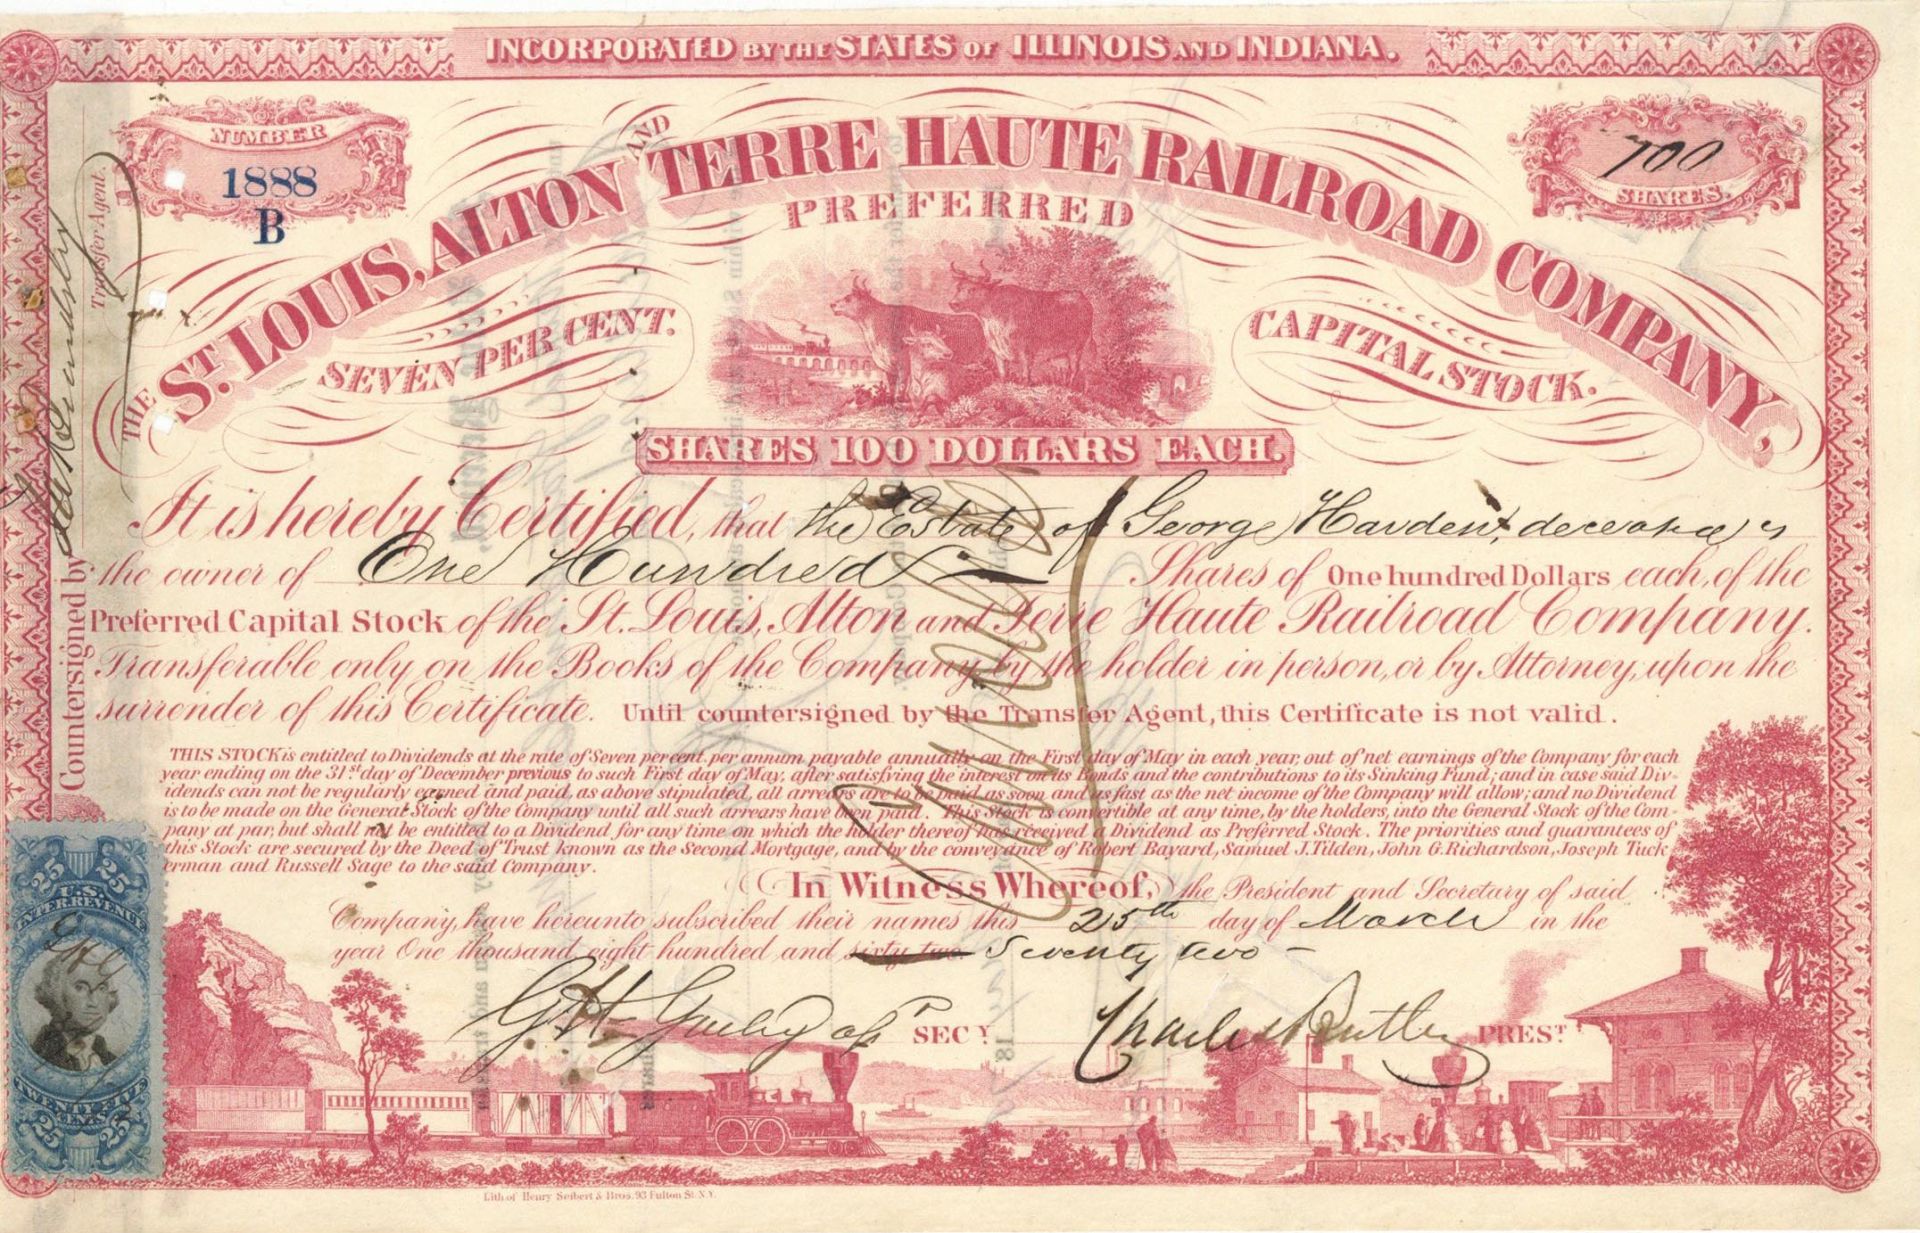 INCORPORATED BY THE STATES OF ILLINOIS AND INDIANA.
NUMBER
1888
B
100
SHARES.
THE ST. LOUIS, ALTON AND TERRE HAUTE RAILROAD COMPANY,
PREFERRED
SEVEN PER CENT.
CAPITAL STOCK.
SHARES 100 DOLLARS EACH.
It is hereby Certified, that the Estate of George Hayden, deceased is
the owner of One Hundred Shares of One hundred Dollars each, of the
Preferred Capital Stock of the St. Louis, Alton and Terre Haute Railroad Company.
Transferable only on the Books of the Company by the holder in person, or by Attorney, upon the
surrender of this Certificate. Until countersigned by the Transfer Agent, this Certificate is not valid.
THIS STOCK is entitled to Dividends at the rate of Seven per cent. per annum, payable annually on the First day of May in each year, out of net earnings of the Company for each
year ending on the 31st day of December previous to such First day of May, after satisfying the interest on its Bonds and the contributions to its Sinking Fund; and in case said Div-
idends can not be regularly earned and paid, as above stipulated, all arrears are to be paid as soon and as fast as the net income of the Company will allow; and no Dividend
is to be made on the General Stock of the Company until all such arrears have been paid. This Stock is convertible at any time, by the holders, into the General Stock of the Com-
pany at par, but shall not be entitled to a Dividend for any time on which the holder thereof has received a Dividend as Preferred Stock. The priorities and guarantees of
this Stock are secured by the Deed of Trust known as the Second Mortgage, and by the conveyance of Robert Bayard, Samuel J. Tilden, John G. Richardson, Joseph Tuck
erman and Russell Sage to the said Company.
In Witness Whereof, the President and Secretary of said
Company, have hereunto subscribed their names this 25th day of March in the
year One thousand eight hundred and sixty two Seventy two
SECY.
Charles Butler PREST.
Countersigned by
Transfer Agent.
Cancelled
25 25
U.S.
INTER. REVENUE
TWENTY-FIVE
CENTS
25 25
Lith of Henry Seibert & Bros. 93 Fulton St. N.Y.